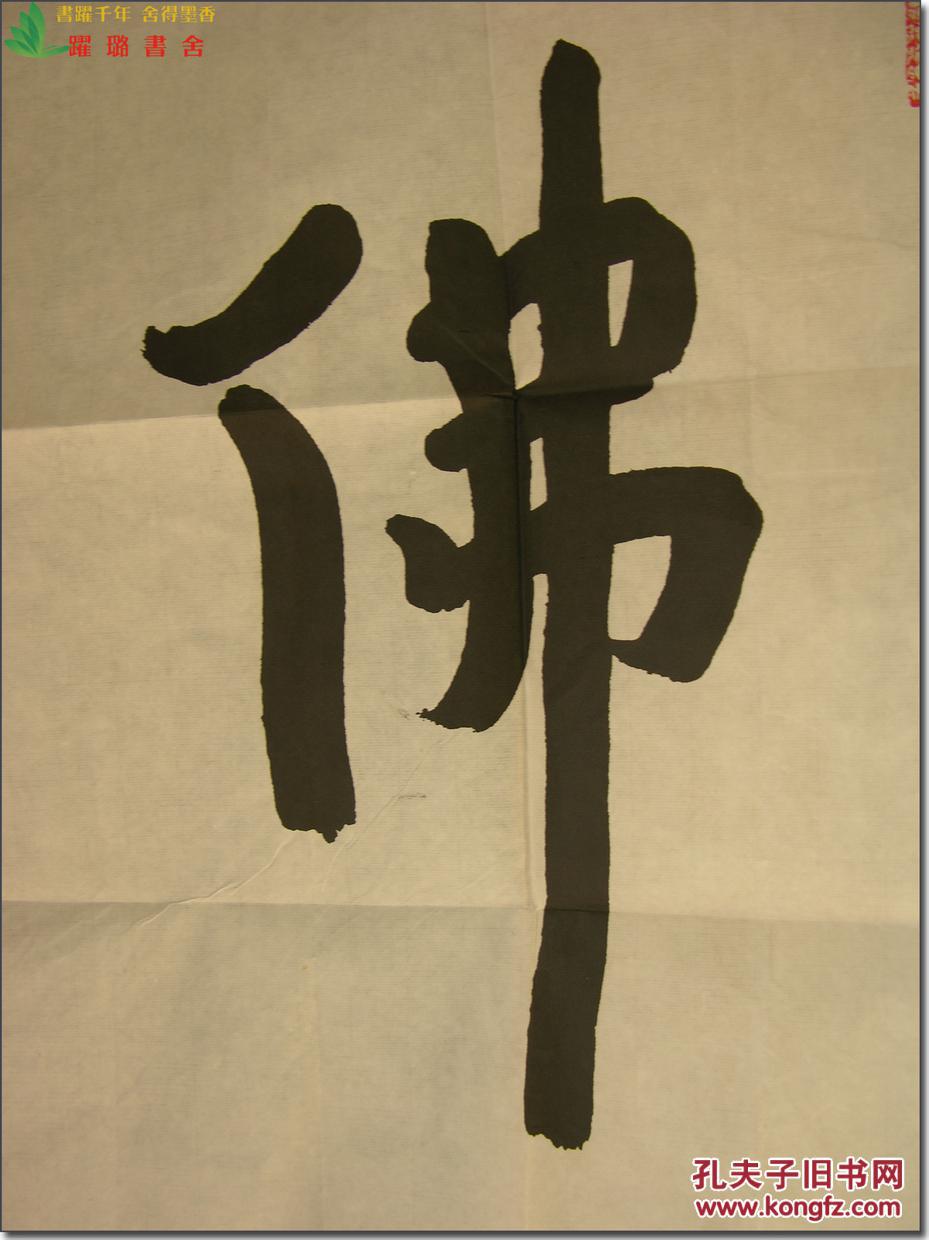 書躍千年 舍得墨香
躍璐書舍
佛
孔夫子旧书网
www.kongfz.com